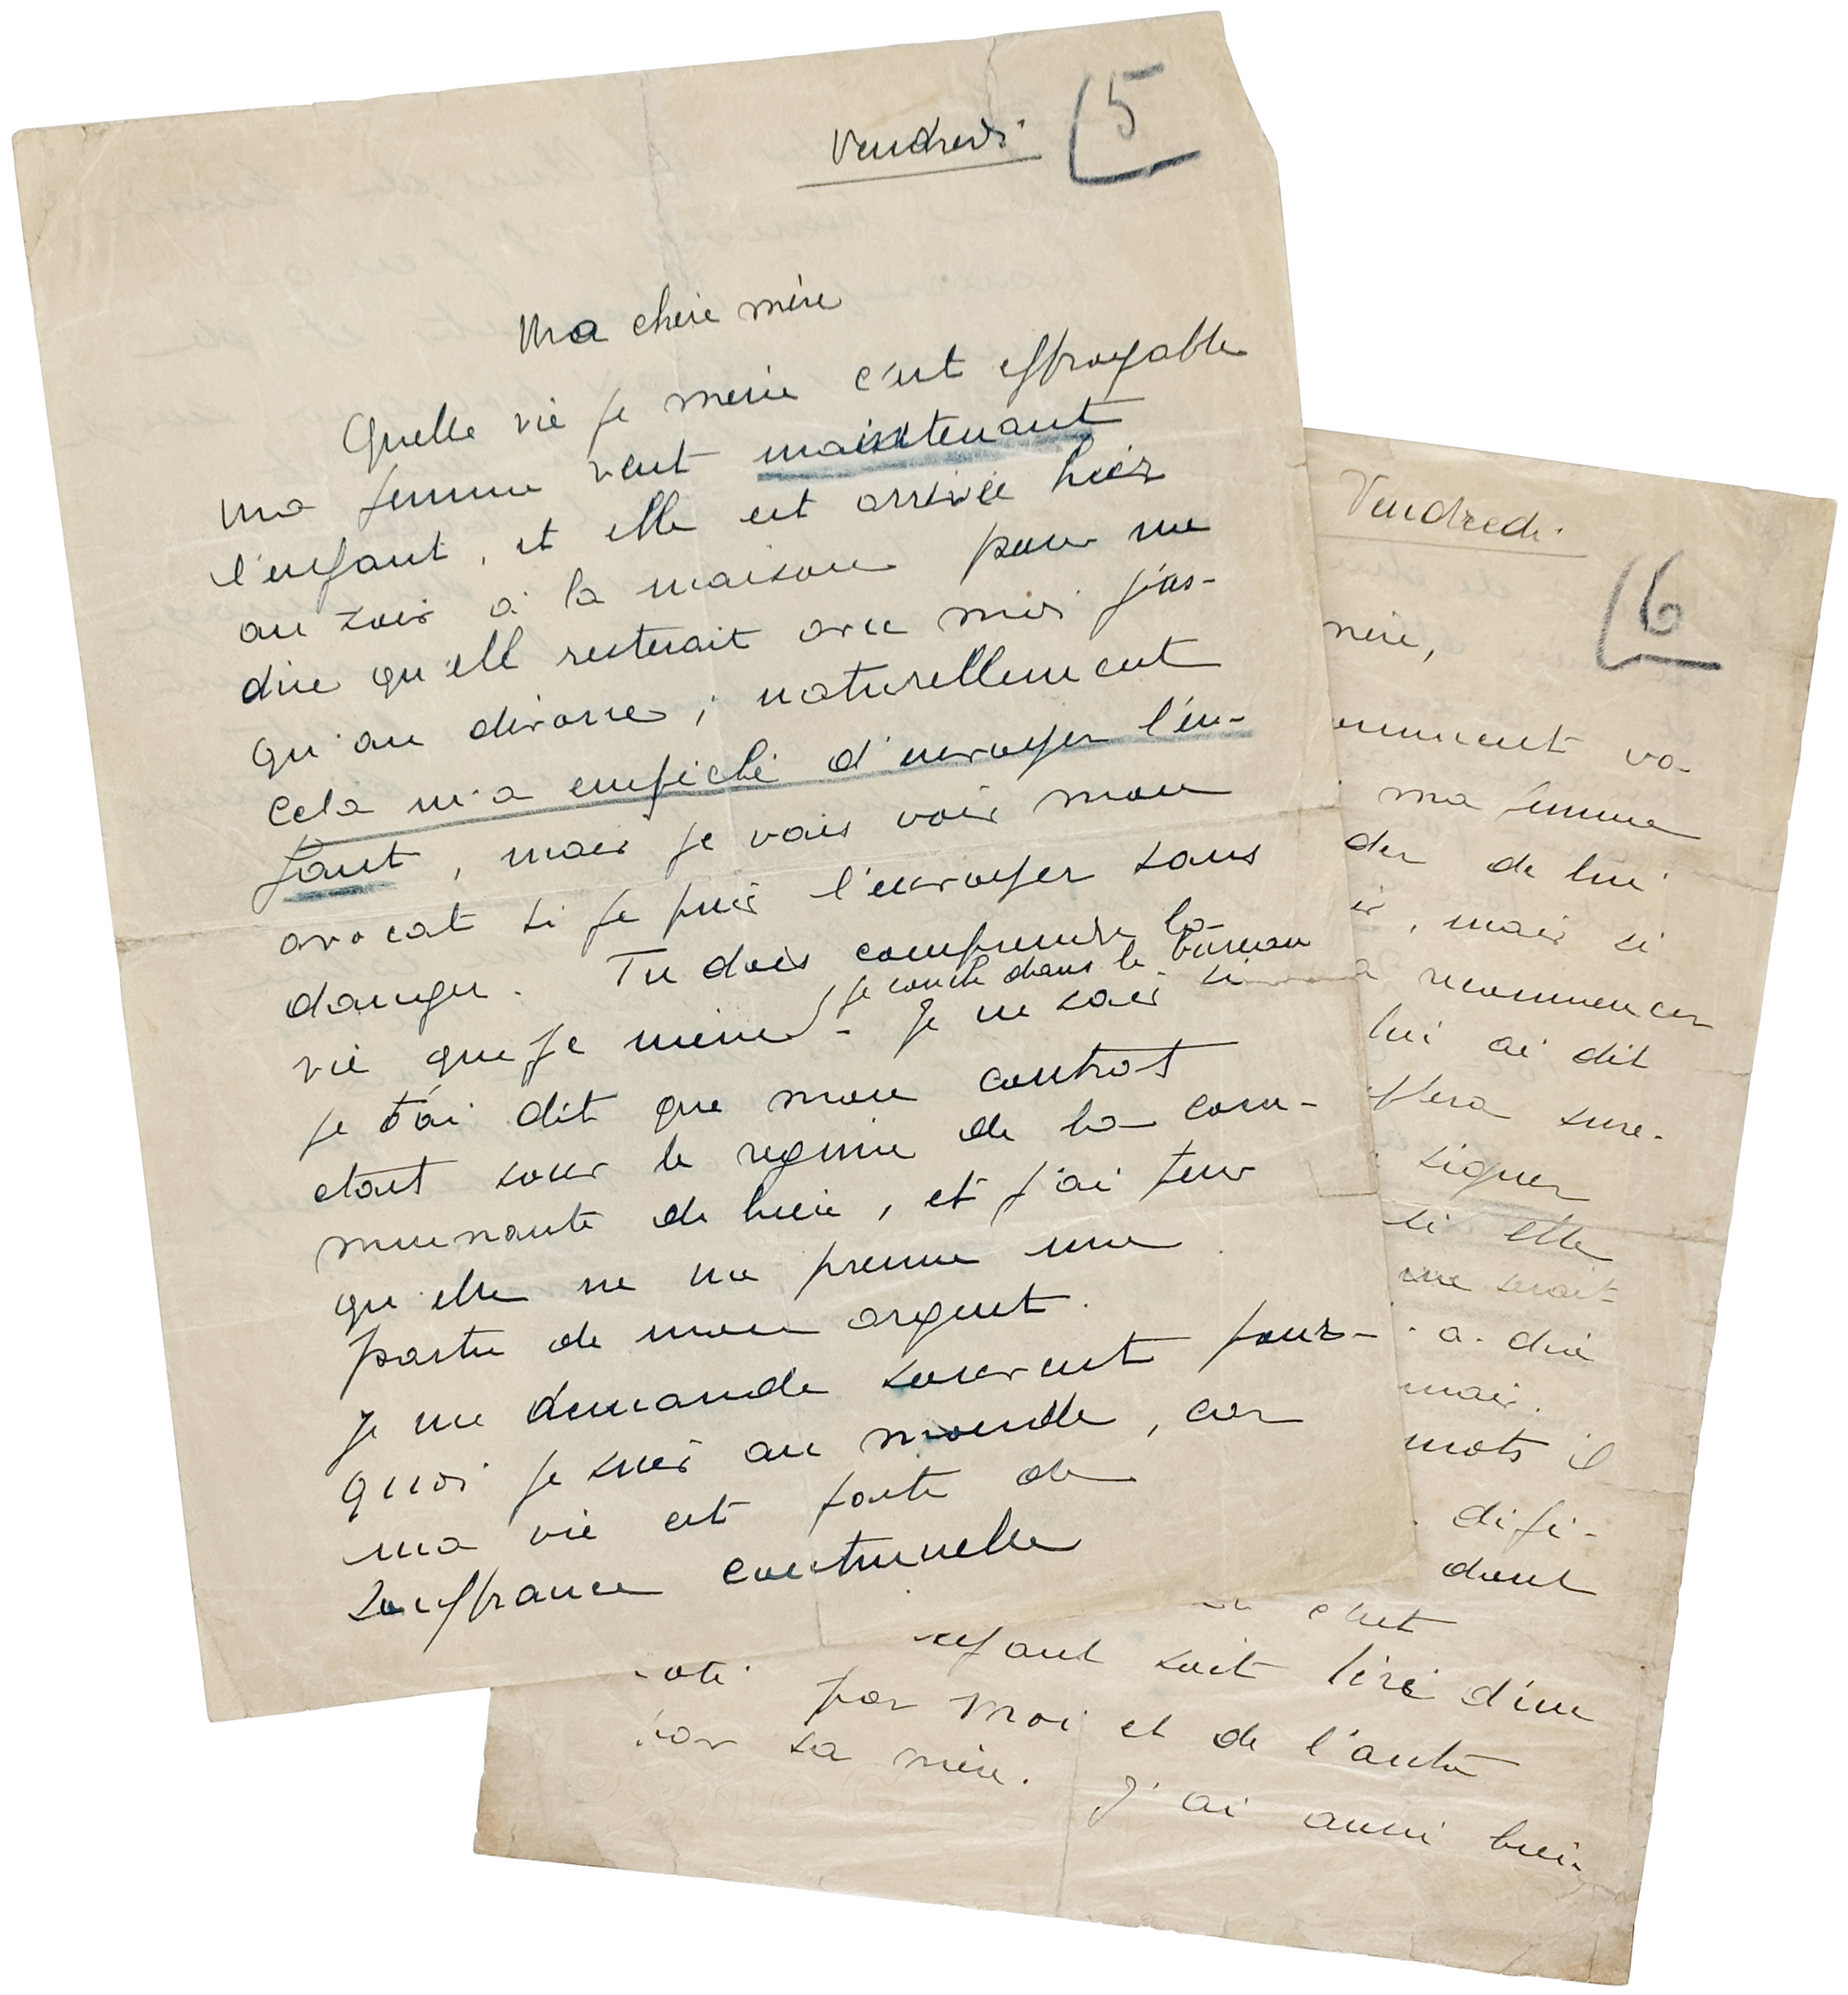 Vendredi
5
Ma chère mère
Quelle vie je mène c'est effroyable
ma femme veut maintenant
l'enfant, et elle est arrivée hier
au soir à la maison pour me
dire qu'elle resterait avec moi jus-
qu'au divorce ; naturellement
Cela m'a empêché d'envoyer l'en-
fant, mais je vais voir mon
avocat si je puis l'envoyer sans
danger. Tu dois comprendre la
je couche dans le bureau
vie que je mène - Je ne sais si
je t'ai dit que mon contrat
etait sous le regime de la com-
munauté de biens, et j'ai peur
qu'elle ne me prenne une
partie de mon argent.
Je me demande souvent pour-
quoi je suis au monde, car
ma vie est faite de
Souffrance continuelle
Vendredi
6
mère,
va-
ma femme
de lui
, mais si
recommencer
lui ai dit
sure-
signer
si elle
me serait
a dire
mais.
mots il
difi-
dont
c'est
soit tiré d'un
par moi et de l'autre
par sa mère. J'ai aussi bien